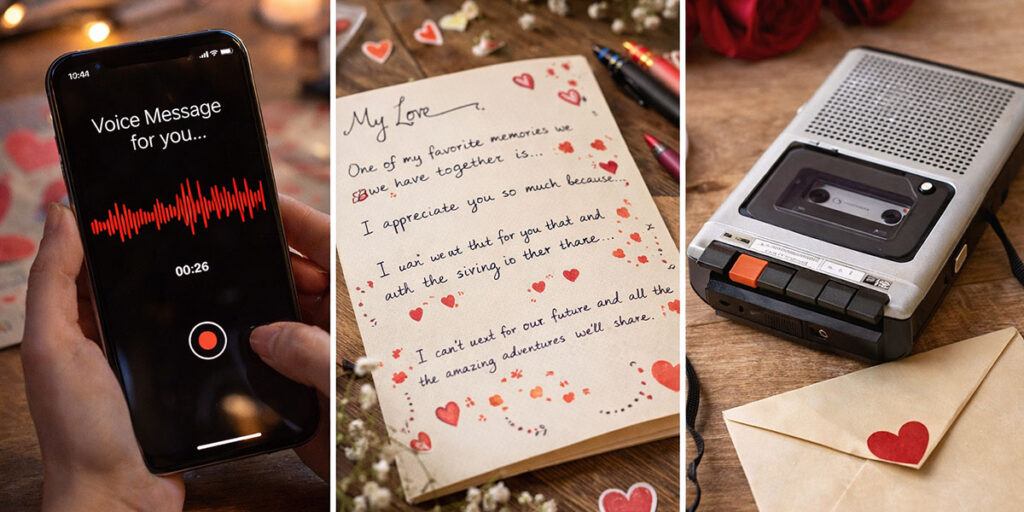 10:44
Voice Message
for you...
00:26
My Love
One of my favorite memories we
we have together is...
I appreciate you so much because...
I uan' weut thut for you that and
auth the siving io ther thare...
I can't uext for our future and all the
the amazing adventures we'll share.